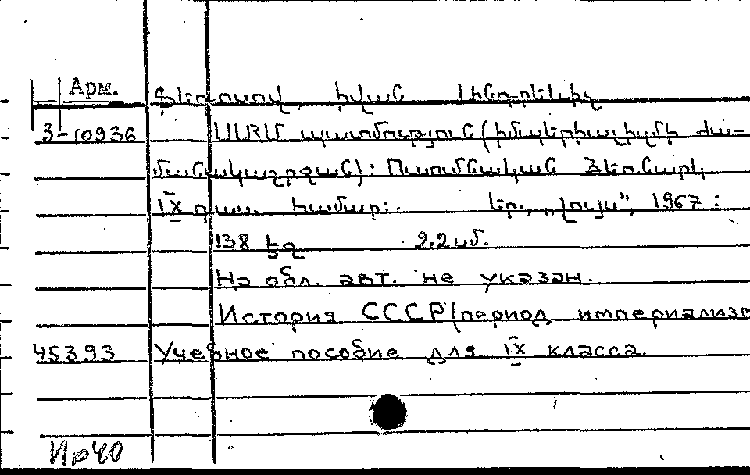 Арм.
Ֆեդոսով, Իվան
3-10936 ՍՍՌՄ պատմություն (իմպերիալիզմի ժա-
մանակաշրջան): Ուսումնական ձեռնարկ
IX դաս. համար: Եր., „Լույս", 1967:
138 էջ 9.2 սմ.
На обл. авт. не указан.
История СССР (период империализ
45393 Учебное пособие для IX класса.